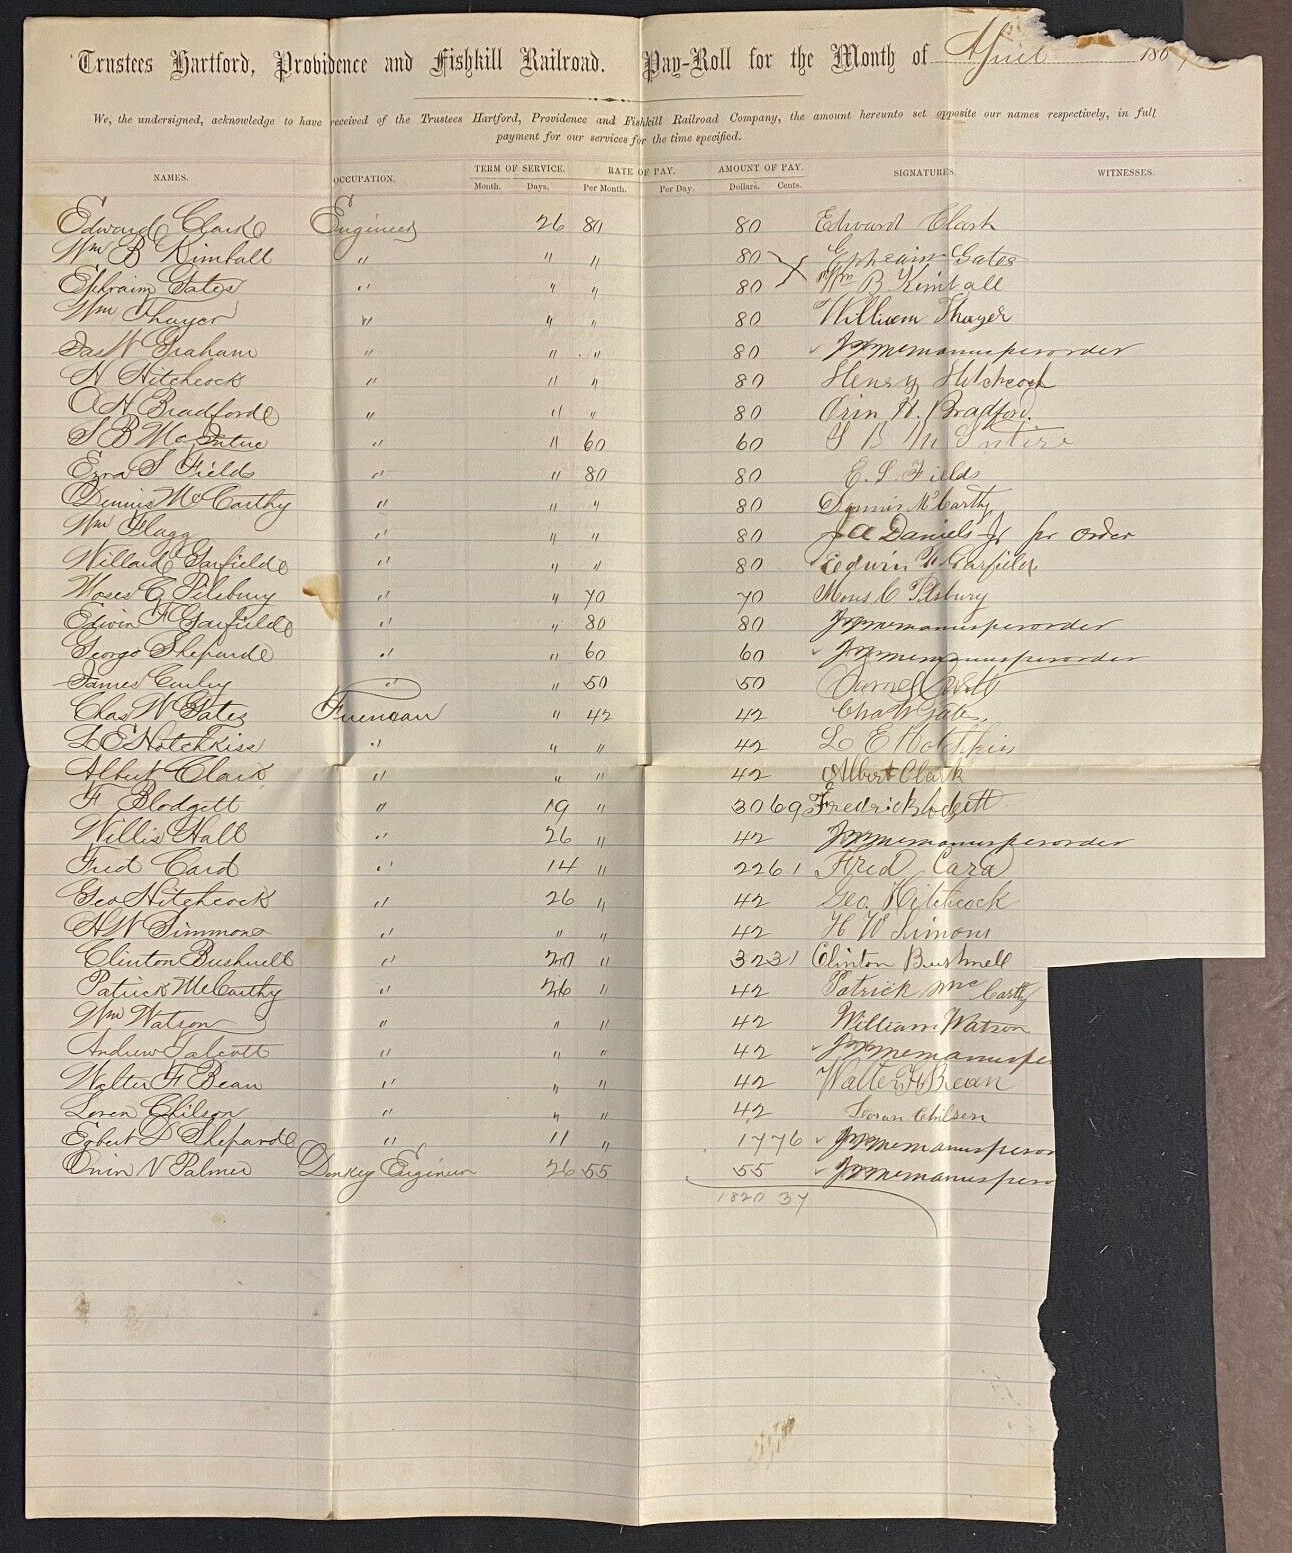 Trustees Hartford, Providence and Fishkill Railroad. Pay-Roll for the Month of April 186
We, the undersigned, acknowledge to have received of the Trustees Hartford, Providence and Fishkill Railroad Company, the amount hereunto set opposite our names respectively, in full
payment for our services for the time specified.
NAMES. OCCUPATION. TERM OF SERVICE. RATE OF PAY. AMOUNT OF PAY. SIGNATURES. WITNESSES.
Month. Days. Per Month. Per Day. Dollars. Cents.
Edward Clark Engineer 26 80 80 Edward Clark
Wm B Kimball " " " 80 Ephraim Gates
Ephraim Gates " " " 80 Wm B. Kimball
Wm Thayer " " " 80 William Thayer
Jas W Graham " " " 80 per order
H Hitchcock " " " 80 Henry Hitchcock
O H Bradford " " " 80 Orin H. Bradford.
S B McIntire " " 60 60 S B McIntire
Ezra S Fields " " 80 80 E. S. Fields
Dennis McCarthy " " " 80 Dennis McCarthy
Wm Flagg " " " 80 J A Daniels Jr pr order
Willard Garfield " " " 80 Edwin F. Garfield
Moses C Pilsbury " " 70 70 Moses C Pilsbury
Edwin F Garfield " " 80 80 per order
George Shepard " " 60 60 per order
James Curley " " 50 50 James
Chas W Gates Fireman " 42 42 Chas W Gates.
L E Hotchkiss " " " 42 L E Hotchkiss
Albert Clark " " " 42 Albert Clark
F Blodgett " 19 " 30 69 Fredrick Blodgett
Willis Hall " 26 " 42 per order
Fred Card " 14 " 22 61 Fred Card
Geo Hitchcock " 26 " 42 Geo. Hitchcock
H W Simmons " " " 42 H W Simons
Clinton Bushnell " 20 " 32 31 Clinton Bushnell
Patrick McCarthy " 26 " 42 Patrick McCarthy
Wm Watson " " " 42 William Watson
Andrew Talcott " " " 42
Walter F Bean " " " 42 Walter F Bean
Loren Chilson " " " 42 Loran Chilsen
Egbert D Shepard " 11 " 17 76
Orrin V Palmer Donkey Engineer 26 55 55
1820 37